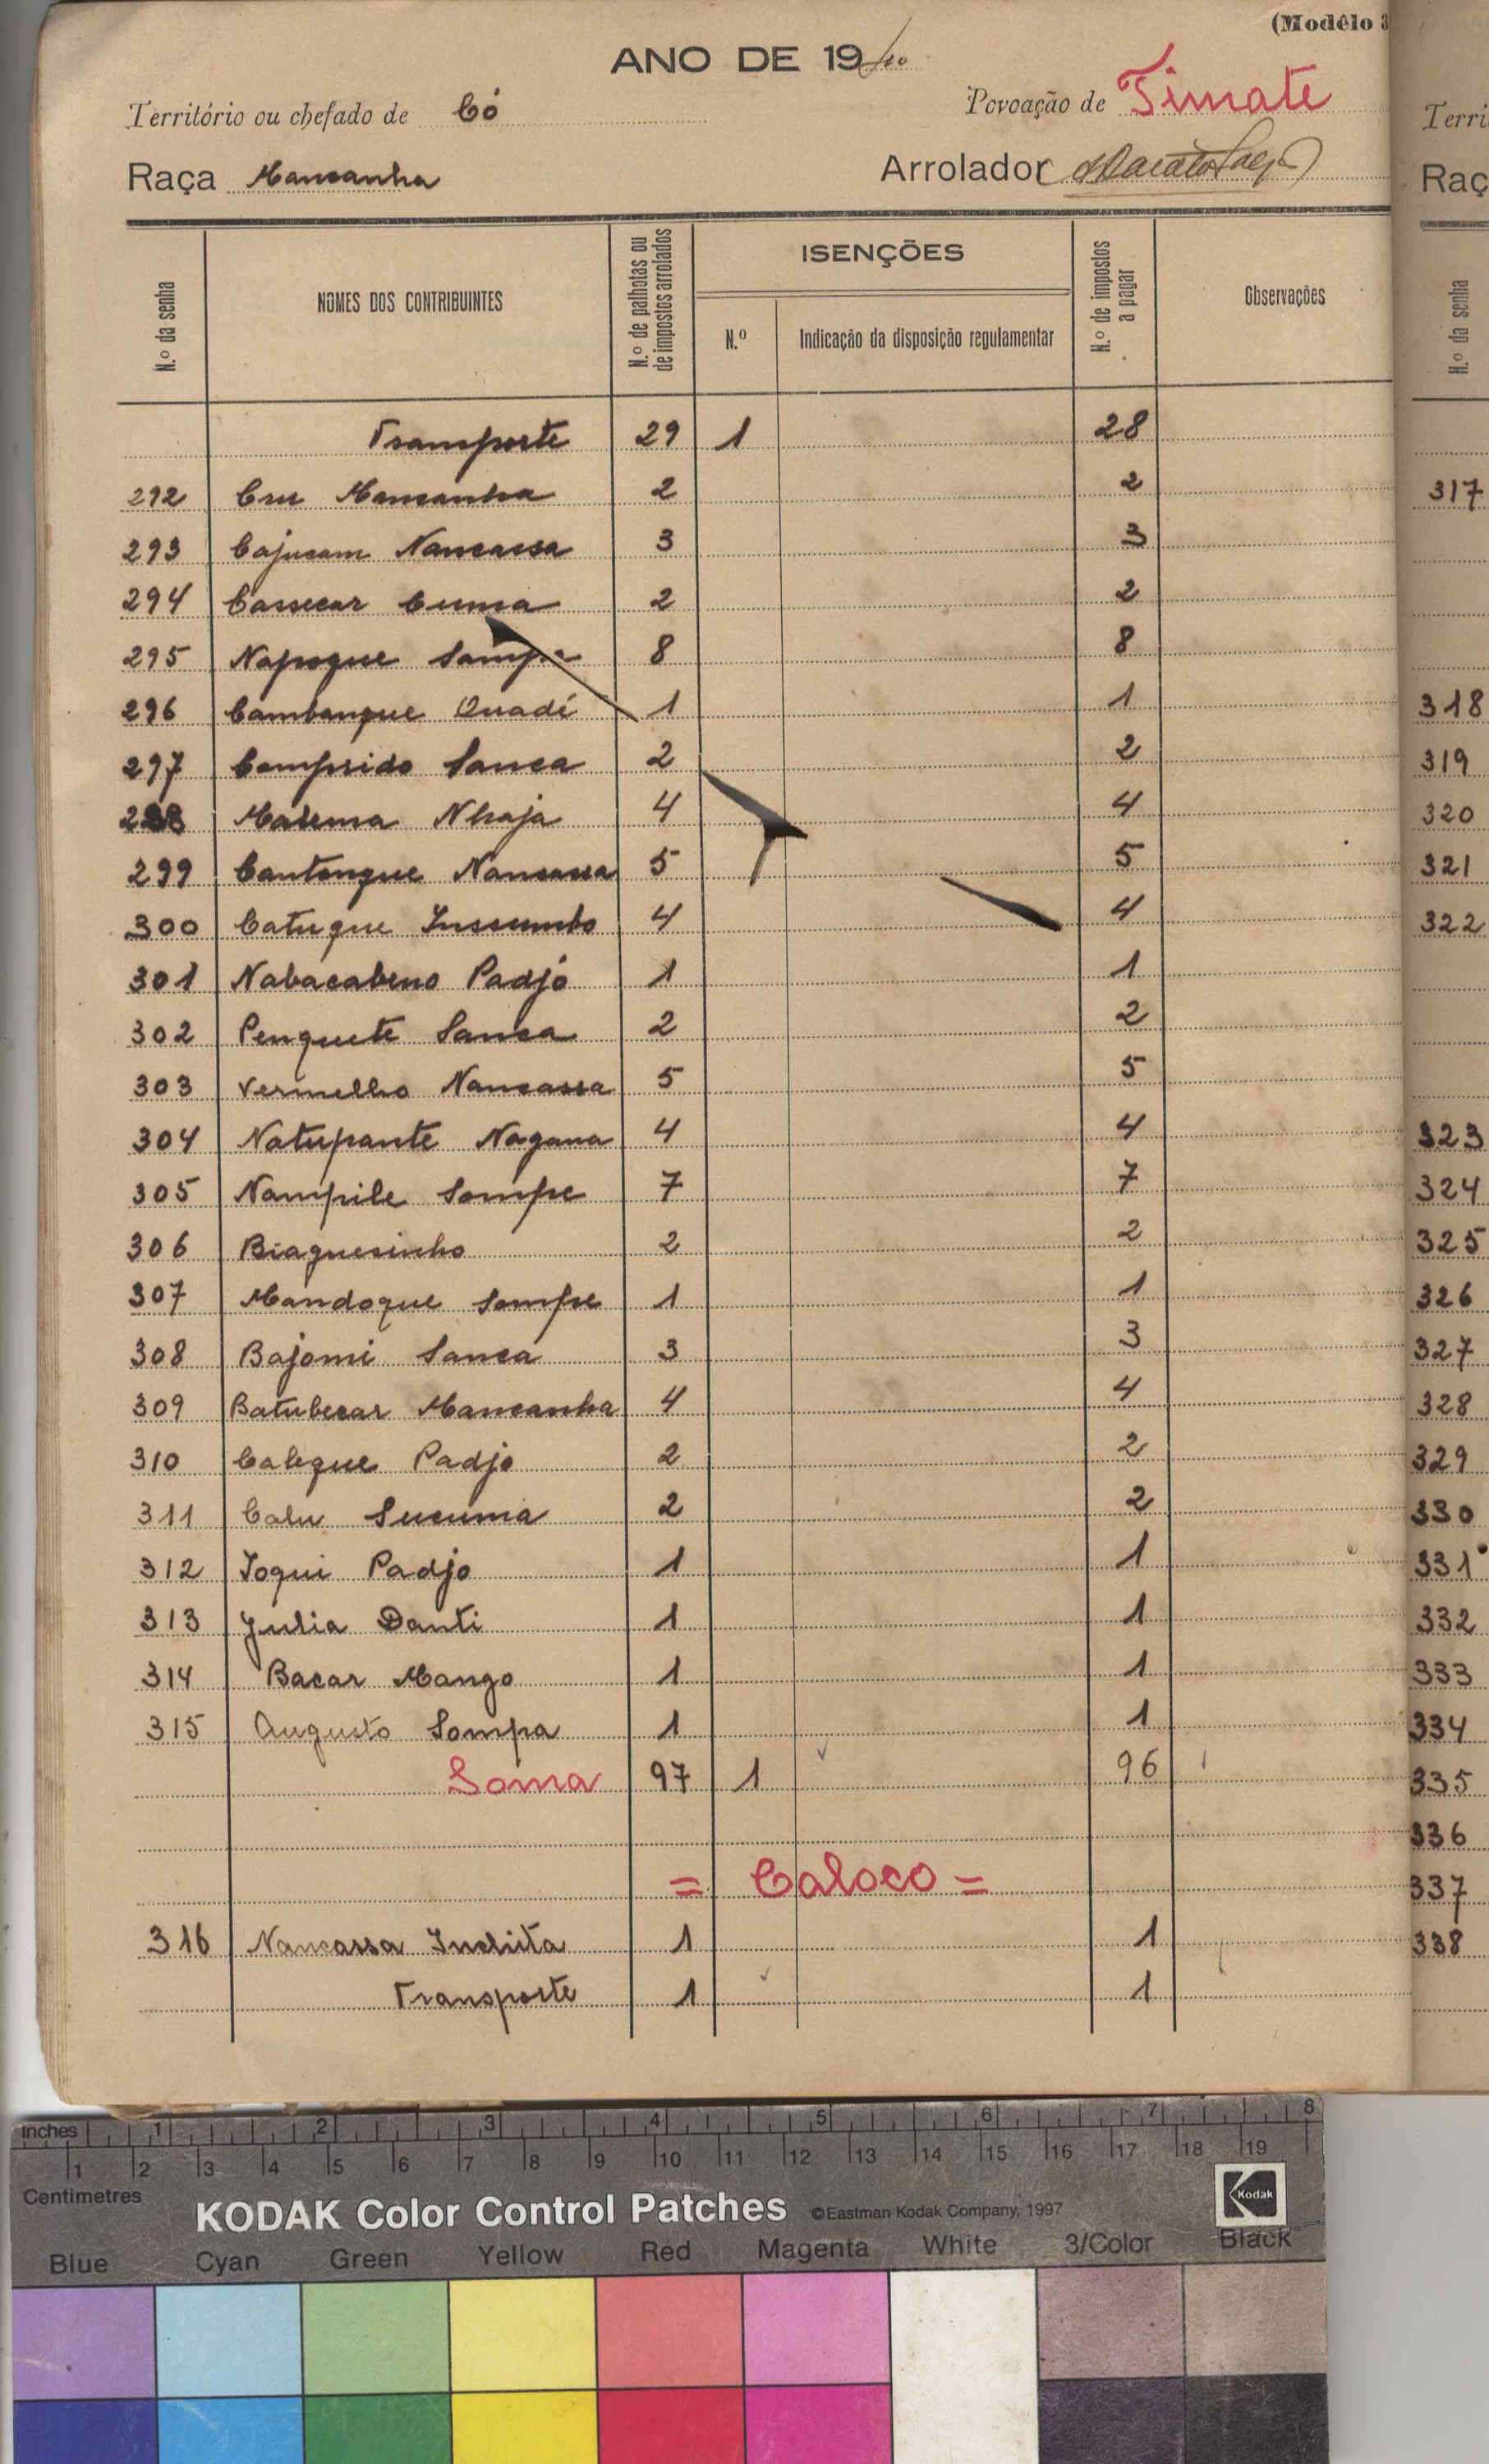 (Modêlo 3
ANO DE 1940
Território ou chefado de Có
Povoação de Timate
Raça Mancanha
Arrolador
N.º da senha
NOMES DOS CONTRIBUINTES
N.º de palhotas ou de impostos arrolados
ISENÇÕES
N.º
Indicação da disposição regulamentar
N.º de impostos a pagar
Observações
Transporte 29 1 28
292 Cru Mancanha 2 2
293 Cajucam Nancassa 3 3
294 Cassecar Cuma 2 2
295 Napoque Sompe 8 8
296 Cambanque Quadé 1 1
297 Comprido Sanca 2 2
298 Malema Nhaja 4 4
299 Cantongue Nancassa 5 5
300 Catuque Insumbo 4 4
301 Nabacabeno Padjó 1 1
302 Penquete Sanca 2 2
303 Vermelho Nancassa 5 5
304 Natupante Nagana 4 4
305 Nampile Sompe 7 7
306 Biaguesinho 2 2
307 Mandoque Sompe 1 1
308 Bajomi Sanca 3 3
309 Batubecar Mancanha 4 4
310 Caleque Padjo 2 2
311 Calu Sucuma 2 2
312 Toqui Padjo 1 1
313 Julia Danti 1 1
314 Bacar Mango 1 1
315 Augusto Sompa 1 1
Soma 97 1 96
= Caloco =
316 Nancassa Inchita 1 1
Transporte 1 1
Terri
Raç
N.º da senha
317
318
319
320
321
322
323
324
325
326
327
328
329
330
331
332
333
334
335
336
337
338
Inches 1 2 3 4 5 6 7 8
1 2 3 4 5 6 7 8 9 10 11 12 13 14 15 16 17 18 19
Centimetres
KODAK Color Control Patches ©Eastman Kodak Company, 1997
Kodak
Blue Cyan Green Yellow Red Magenta White 3/Color Black